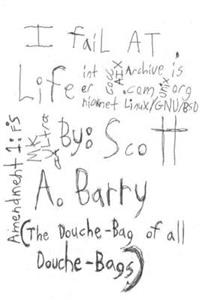 I FaiL AT
Life
int
er
Archive is
.com
org
Linux/GNU/BSD
Amendment 1:
MK
Ultra
By: Scott
A. Barry
(The Douche-Bag of all
Douche-Bags)